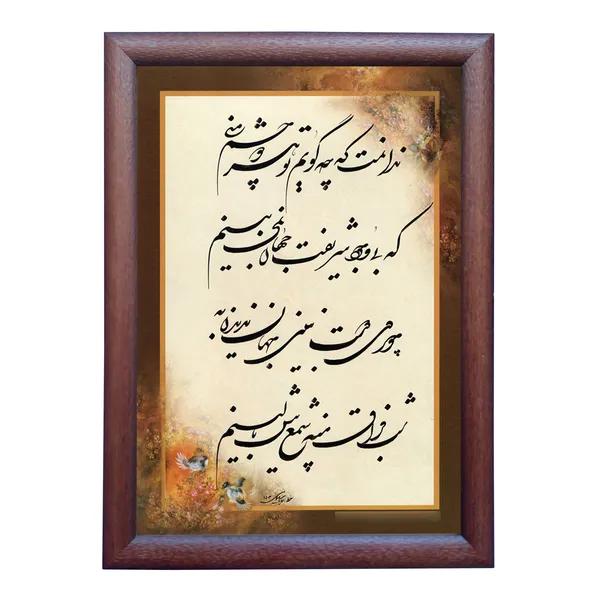 ندانمت که چه گویم تو هر دو چشم منی
که بی وجود شریفت جهان نمی بینم
چو روی دوست نبینی جهان ندیده به
شب فراق منه شمع پیش بالینم